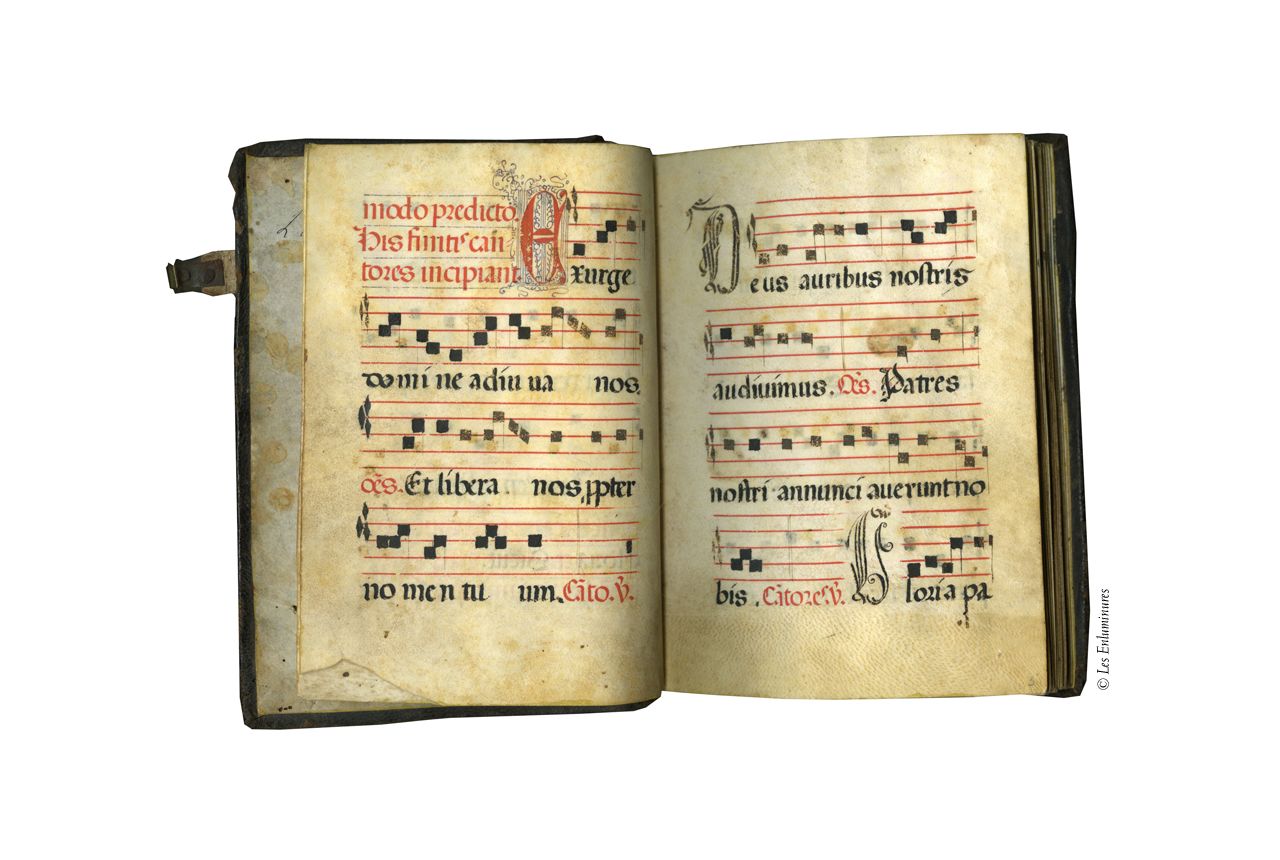 modo predicto.
His finitis can
tores incipiant. E
xurge
domine adiuua nos.
Oēs. Et libera nos, ꝓpter
nomen tuum. Cāto. V̄.
Deus auribus nostris
audiuimus. Oēs. Patres
nostri annunciauerunt no
bis. Cātores V̄. Gloria pa
© Les Enluminures